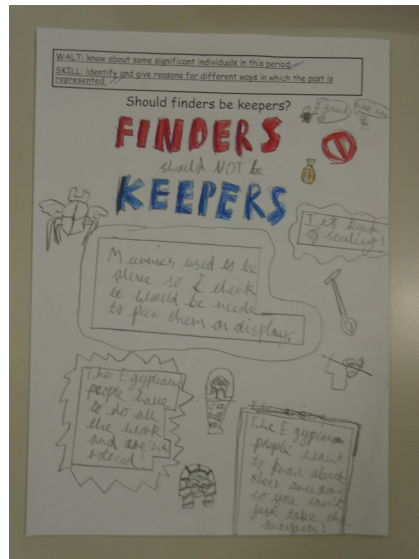 WALT: know about some significant individuals in this period.
SKILL: identify and give reasons for different ways in which the past is
represented.
Should finders be keepers?
FINDERS
should NOT be
KEEPERS
I
of stealing!
Mummies used to be
alive so I think
it would be
to put them on display.
The Egyptian
people have
to do all
the work
and
The Egyptian
people want
to know about
their
so you can't
just take the
artifacts!